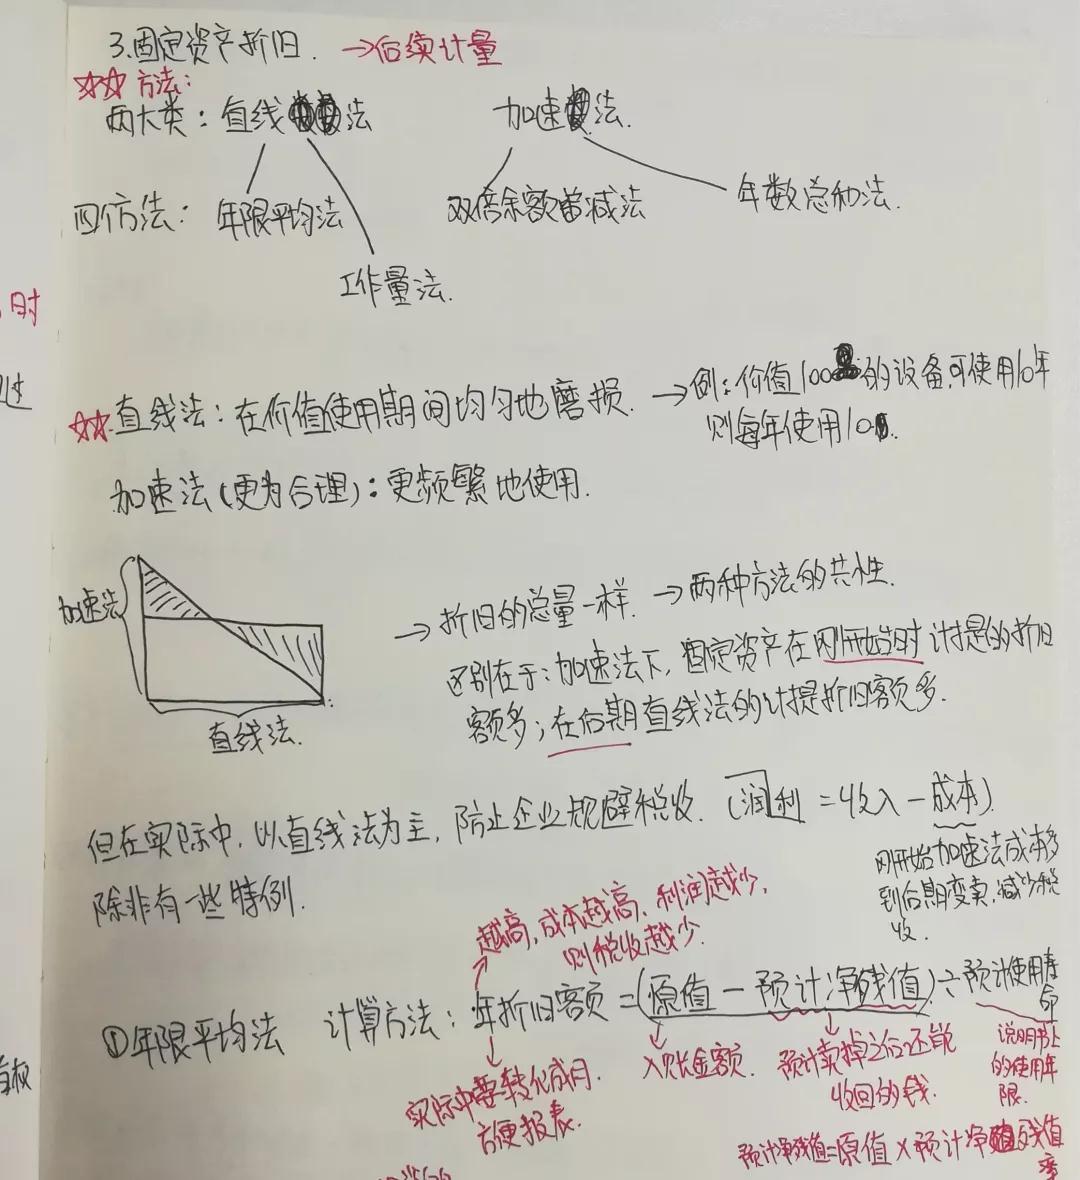 3.固定资产折旧. →后续计量
☆☆方法:
两大类: 直线法 加速法.
四个方法: 年限平均法 双倍余额递减法 年数总和法.
工作量法.
时
☆☆直线法: 在价值使用期间均匀地磨损. →例: 价值100的设备,可使用10年
则每年使用10.
加速法(更为合理): 更频繁地使用.
加速法
直线法.
→折旧的总量一样. →两种方法的共性.
区别在于: 加速法下, 固定资产在刚开始时计提的折旧
额多; 在后期直线法的计提折旧额多.
但在实际中, 以直线法为主, 防止企业规避税收. (润利=收入-成本).
除非有一些特例.
刚开始加速法成本多
到后期变卖,减少税
收.
越高,成本越高、利润越少,
则税收越少.
①年限平均法 计算方法: 年折旧额=(原值-预计净残值)÷预计使用寿命
实际中要转化成月.
方便报表.
入账金额.
预计卖掉之后还能
收回的钱.
说明书上
的使用年
限.
预计净残值=原值×预计净残值率